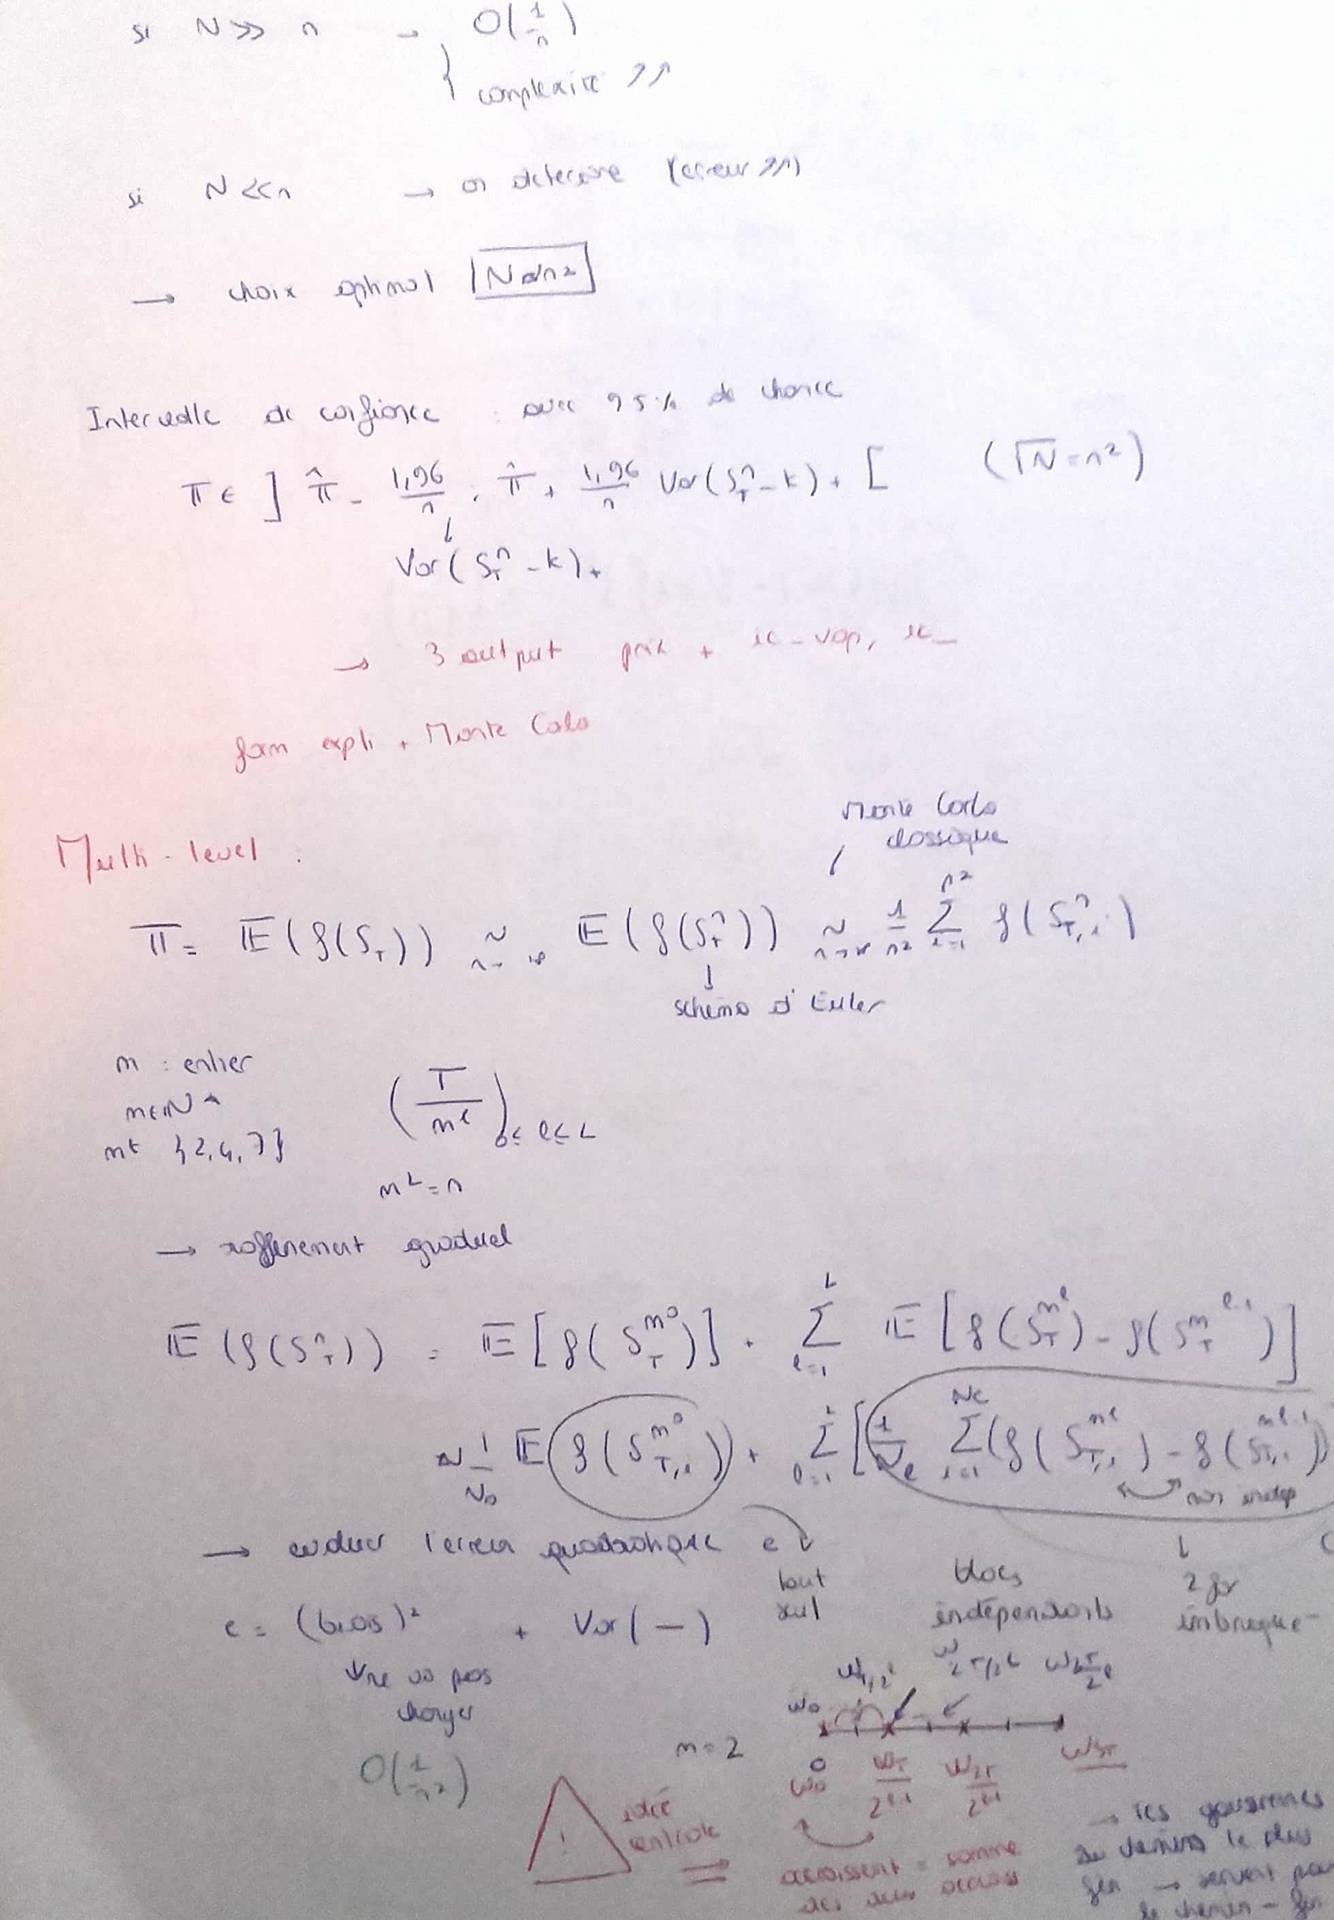 si N >> n → { O(1/n)
complexité ↗↗
si N << n → on détériore (erreur ↗↗)
→ choix optimal [N ∝ n²]
Intervalle de confiance : avec 95% de chance
Π ∈ ] Π̂ - 1,96/n ; Π̂ + 1,96/n Var(S_T^n - k)+ [ (√N = n²)
Var(S_T^n - k)+
→ 3 output prix +
form expli + Monte Carlo
Multi-level :
Monte Carlo
classique
Π = E(f(S_T)) ~ n→∞ E(f(S_T^n)) ~ n→∞ 1/n² Σ_{i=1}^{n²} f(S_{T,i}^n)
↓
schéma d'Euler
m : entier
m ∈ N*
m ∈ {2,4,7}
(T/m^l) 0≤l≤L
m^L = n
→ raffinement graduel
E(f(S_T^n)) = E[f(S_T^{m^0})] + Σ_{l=1}^{L} E[f(S_T^{m^l}) - f(S_T^{m^{l-1}})]
~ 1/N_0 E f(S_{T,i}^{m^0}) + Σ_{l=1}^{L} [1/N_l Σ_{i=1}^{N_l} (f(S_{T,i}^{m^l}) - f(S_{T,i}^{m^{l-1}})
non indep
→ l'erreur quadratique e
tout
seul
blocs
indépendants
2 for
imbriqué
e = (biais)² + Var(-)
↓ ne va pas
changer
O(1/n²)
m = 2
W_0
0
W_0 W_T/2^{l-1} W_2T/2^{l-1}
! idée
centrale
⇒ accroissent = somme
des deux
→ les gaussiennes
du chemin le plus
fin → servent pour
le chemin - fin